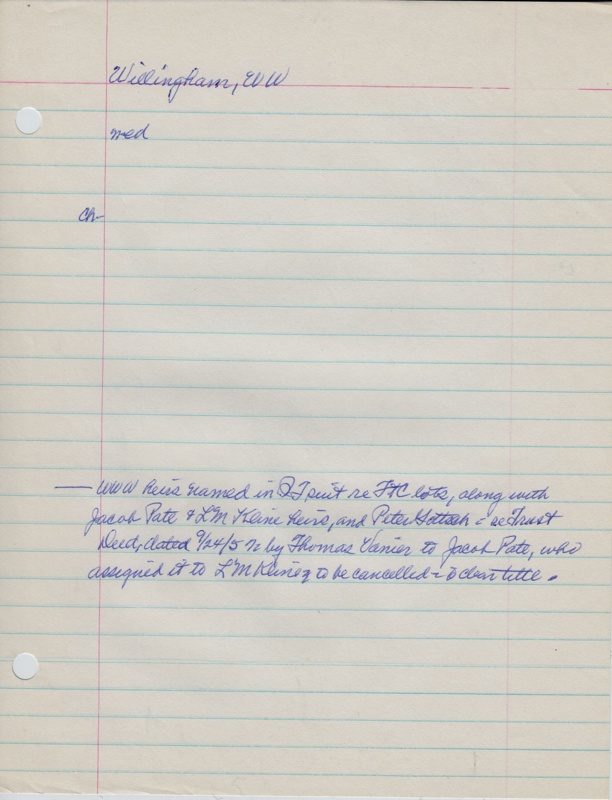 Willingham, WW
med
ch-
— WWW heirs named in QT suit re FTC lots, along with
Jacob Pate & LM Kleine heirs, and Peter - re Trust
Deed, dated 9/24/57 by Thomas Vanier to Jacob Pate, who
assigned it to LM to be cancelled - to clear title.